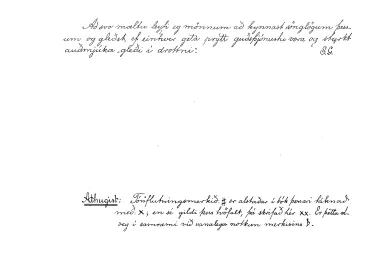 Að svo mæltu leyfi eg mönnum að kynnast sönglögum þess-
um og gleðst ef einhver geta prýtt guðsþjónustu vora og styrkt
auðmjúka gleði í drottni.
Athugist: Tónflutningsmerkið ♮ er alstaðar í bók þessari táknað
með x; en sé gildi þess tvöfalt, þá skrifað hér xx. Er þetta al-
veg í samræmi við vanalega notkun merkisins b.